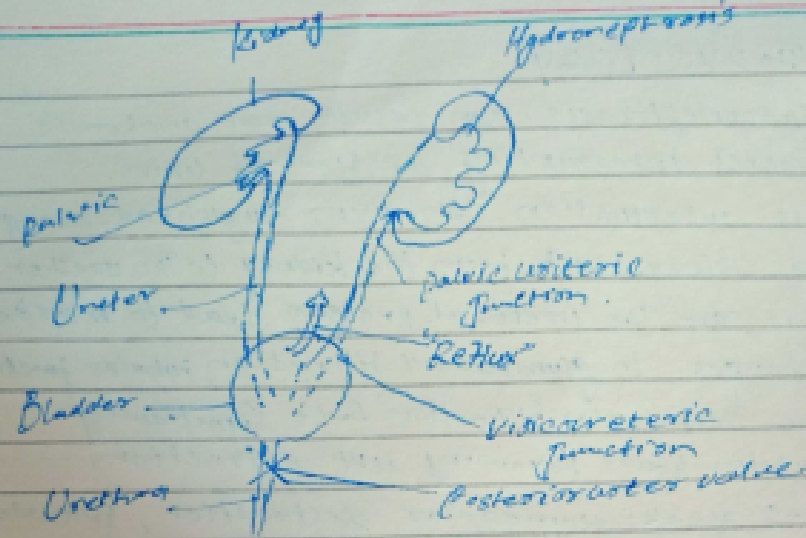 Kidney
Hydronephrosis
Palvic
Ureter
Palvic uriteric
Junction
"Reflux"
Bladder
Visicoureteric
Junction
Urethra
Posterior ureter valve